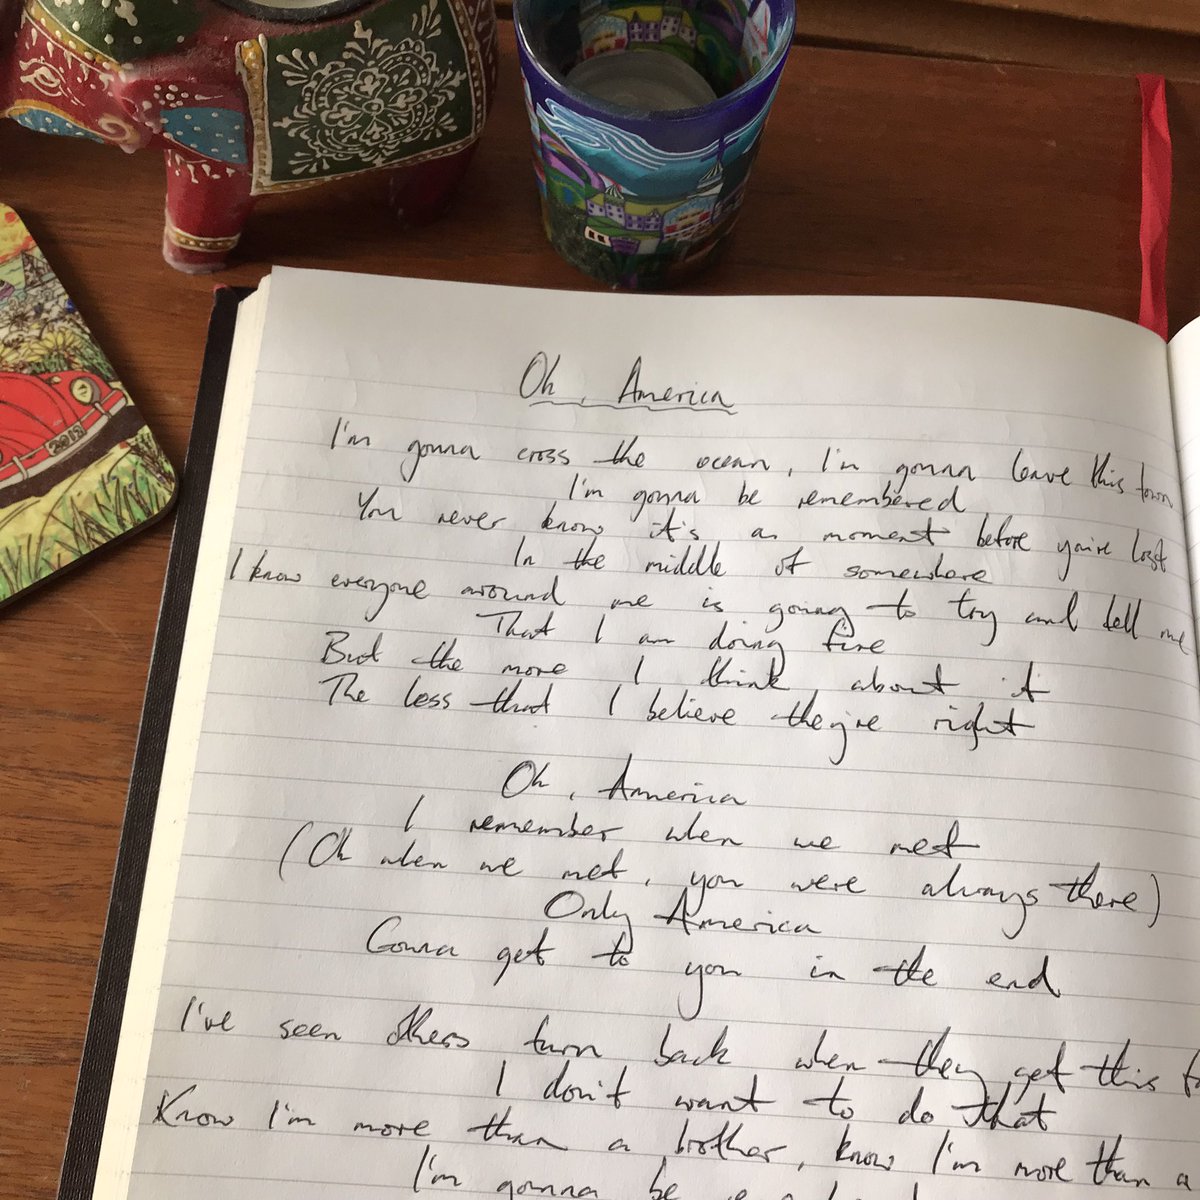 2012
Oh, America
I'm gonna cross the ocean, I'm gonna leave this town
I'm gonna be remembered
You never know it's a moment before you're lost
In the middle of somewhere
I know everyone around me is going to try and tell me
That I am doing fine
But the more I think about it
The less that I believe they're right
Oh, America
I remember when we met
(Oh when we met, you were always there)
Only America
Gonna get to you in the end
I've seen others turn back when they get this
I don't want to do that
Know I'm more than a brother, know I'm more than a
I'm gonna be